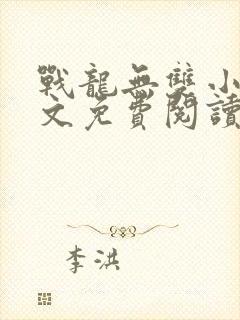 戰龍無雙小
文免費閱讀
李洪